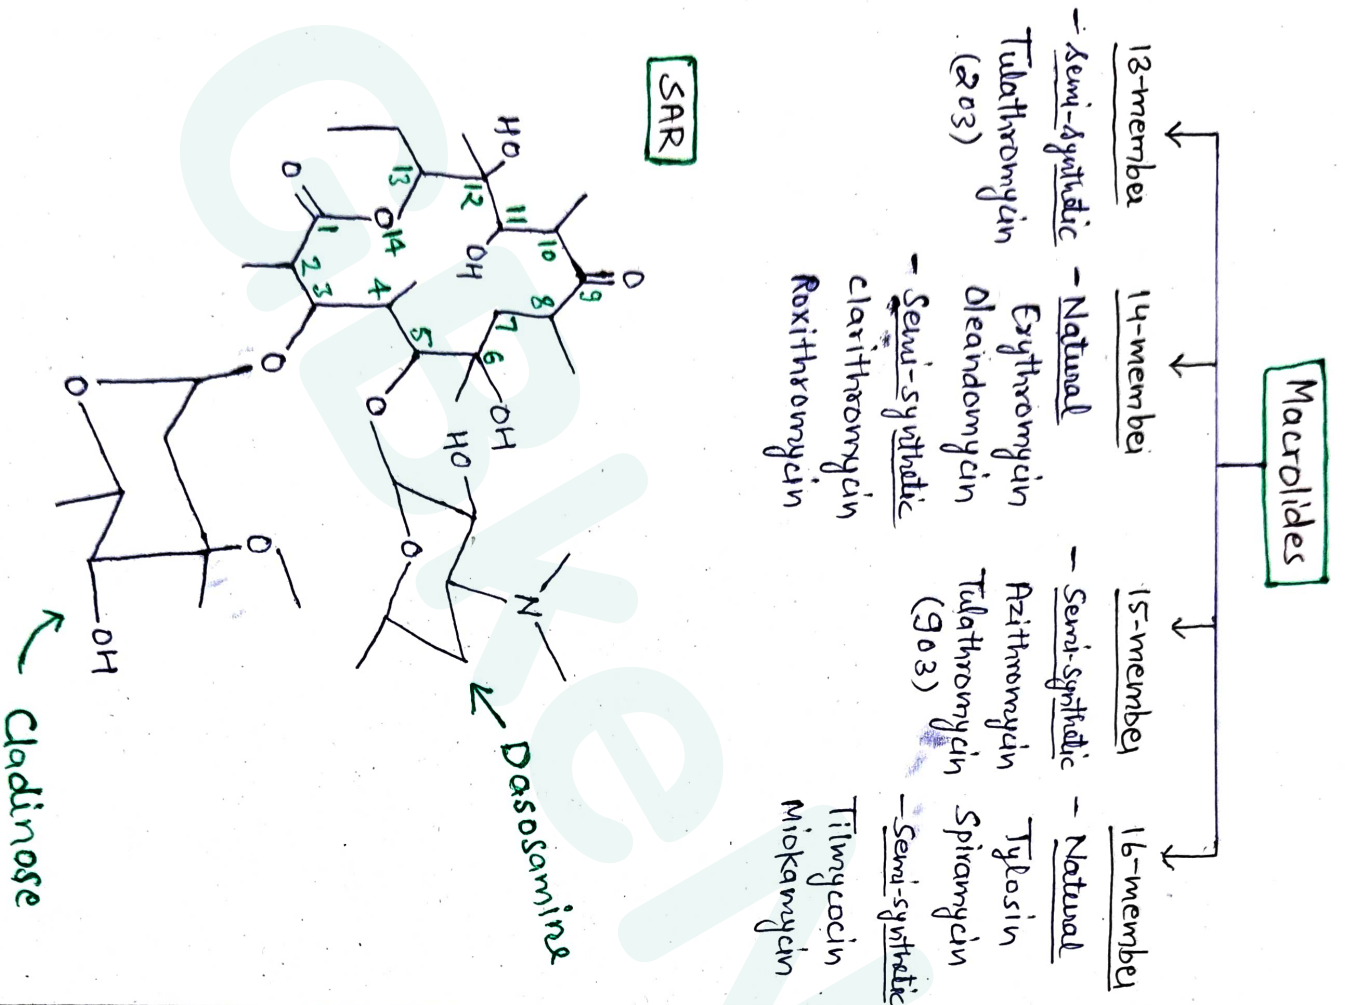 Macrolides
13-member
- semi-synthetic
Tulathromycin
(203)
14-member
- Natural
Erythromycin
Oleandomycin
- Semi-synthetic
Clarithromycin
Roxithromycin
15-member
- Semi-synthetic
Azithromycin
Tulathromycin
(903)
16-member
- Natural
Tylosin
Spiramycin
- Semi-synthetic
Tilmycocin
Miokamycin
SAR
HO
12
11
10
O
9
8
7
6
5
4
3
2
1
O
O
14
13
OH
OH
O
O
HO
O
N
Dasosamine
O
O
OH
Cladinose